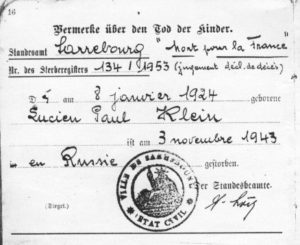 16
Vermerke über den Tod der Kinder.
Standesamt Sarrebourg "Mort pour la France"
Nr. des Sterberegisters 134/1953 (jugement décl. de décès)
D am 8 janvier 1924 geborene
Lucien Paul Klein
ist am 3 novembre 1943
in en Russie gestorben.
Der Standesbeamte.
(Siegel.)
VILLE DE SARREBOURG
ETAT CIVIL